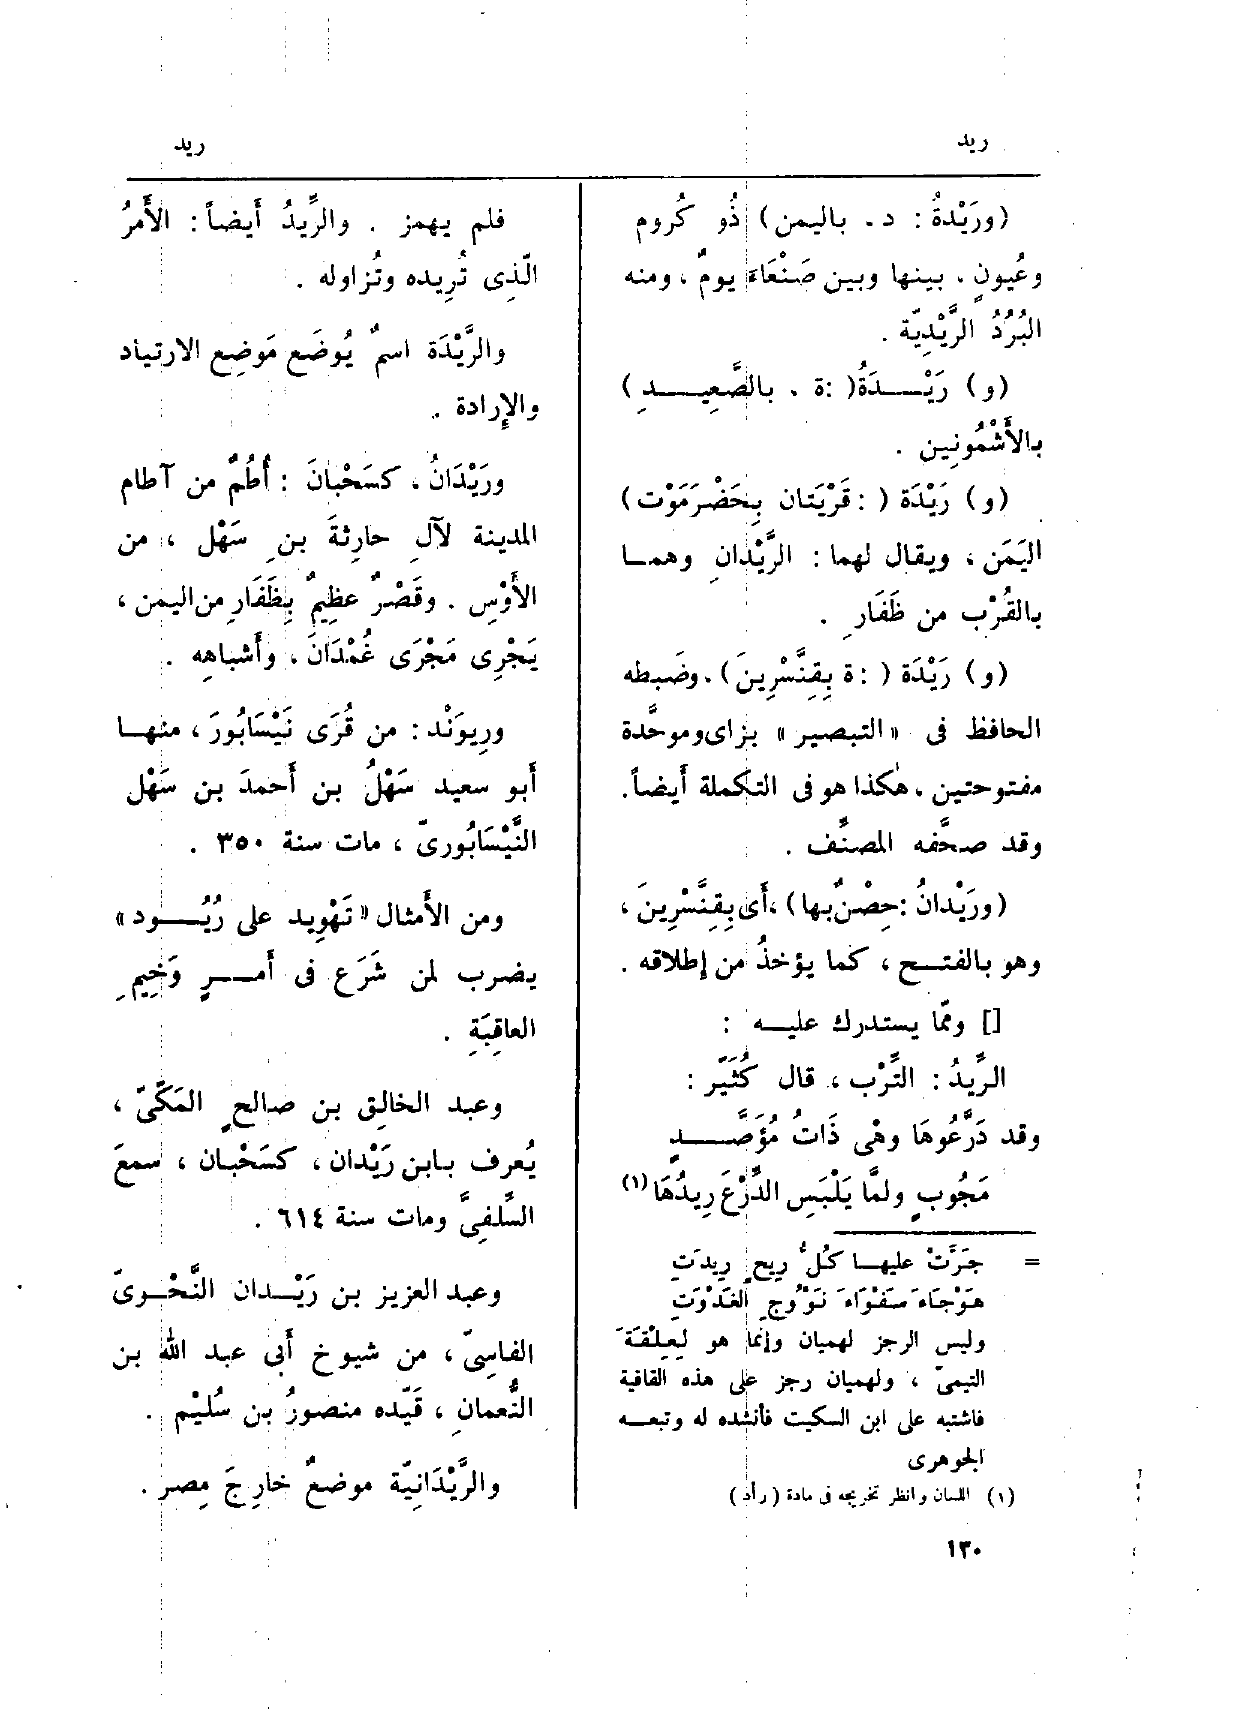 ريد
ريد
(ورَيْدةُ : د . باليمن) ذُو كُروم
وعُيونٍ . بينها وبين صَنْعَاءَ يومٌ ، ومنه
البُرُدُ الرَّيْدِيّة .
(و) رَيْـدَةُ( :ة . بالصَّعِيـدِ )
بالأَشْمُونِين .
(و) رَيْدَة ( : قَرْيَتان بِحَضْرَمَوْت)
اليَمَن ، ويقال لهما : الرَّيْدانِ وهمـا
بالقُرْب من ظَفَارِ .
(و) رَيْدَة ( : ة بِقِنَّسْرِينَ) . وضَبطه
الحافظ فى «التبصير» بزاى وموحَّدة
مفتوحتين ، هٰكذا هو فى التكملة أيضاً .
وقد صحَّفه المصنِّف .
(ورَيْدانُ :حِصْنٌ بها) ،أَى بِقِنَّسْرِينَ ،
وهو بالفتـح ، كما يؤخذُ من إطلاقه .
[] وممّا يستدرك عليـه :
الرِّيدُ : التِّرْب ، قال كُثَيِّر :
وقد دَرَّعُوهَا وهْى ذَاتُ مُؤَصَّـدٍ
مَجُوبٍ ولمَّا يَلْبَسِ الدِّرْعَ رِيدُهَا (١)
= جَرَّتْ عليهـا كُلُّ رِيحٍ رِيدَتِ
هَوْجَاءَ سَفْوَاءَ نَوْوُجِ الغَدْوَتِ
وليس الرجز لهميان وإنما هو لِعِلْقَةَ
التيمىّ ، ولهميان رجز على هذه القافية
فاشتبه على ابن السكيت فأنشده له وتبعـه
الجوهرى
(١) اللسان وانظر تخريجه فى مادة (رأد)
فلم يهمز . والرِّيدُ أَيضاً : الأَمرُ
الّذِى تُرِيده وتُزاوله .
والرَّيْدَة اسمٌ يُوضَع مَوضِع الارتياد
والإِرادة .
ورَيْدَانُ ، كسَحْبانَ : أُطُمٌ من آطام
المدينة لآلِ حارِثةَ بنِ سَهْل ، من
الأَوْسِ . وقَصْرٌ عظِيمٌ بِظَفَارِ من اليمن ،
يَجْرِى مَجْرَى غُمْدَانَ ، وأَشباهِه .
ورِيوَنْد : من قُرَى نَيْسَابُورَ ، منهـا
أَبو سعيد سَهْلُ بن أَحمدَ بن سَهْل
النَّيْسَابُورىّ ، مات سنة ٣٥٠ .
ومن الأَمثال «تَهْوِيد على رُيُـود»
يضرب لمن شَرَع فى أَمـرٍ وَخِيمِ
العاقِبَةِ .
وعبد الخالِق بن صالحٍ المَكِّىّ ،
يُعرف بـابن رَيْدان ، كسَحْبان ، سمعَ
السِّلَفِىَّ ومات سنة ٦١٤ .
وعبد العزيز بن رَيْـدان النَّحْوىّ
الفاسِىّ ، من شيوخ أَبى عبد الله بن
النُّعمانِ ، قَيّده منصورُ بن سُلَيْم .
والرَّيْدَانِيّة موضعٌ خارِجَ مِصر .
١٣٠